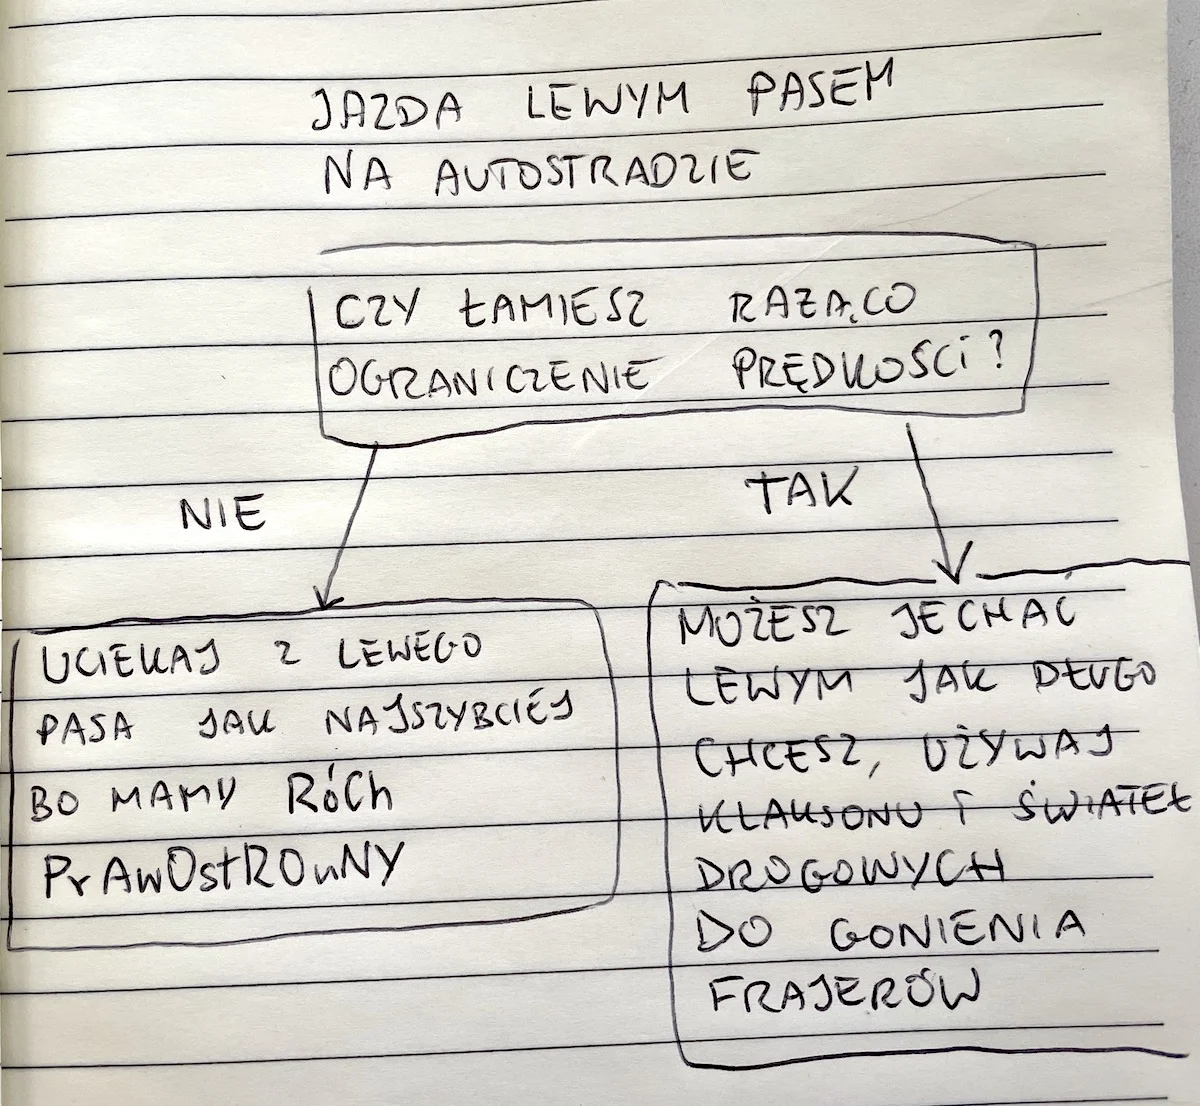 JAZDA LEWYM PASEM
NA AUTOSTRADZIE
CZY ŁAMIESZ RAŻĄCO
OGRANICZENIE PRĘDKOŚCI?
NIE
TAK
UCIEKAJ Z LEWEGO
PASA JAK NAJSZYBCIEJ
BO MAMY RóCh
PrAwOstROnNY
MOŻESZ JECHAĆ
LEWYM JAK DŁUGO
CHCESZ, UŻYWAJ
KLAKSONU I ŚWIATEŁ
DROGOWYCH
DO GONIENIA
FRAJERÓW